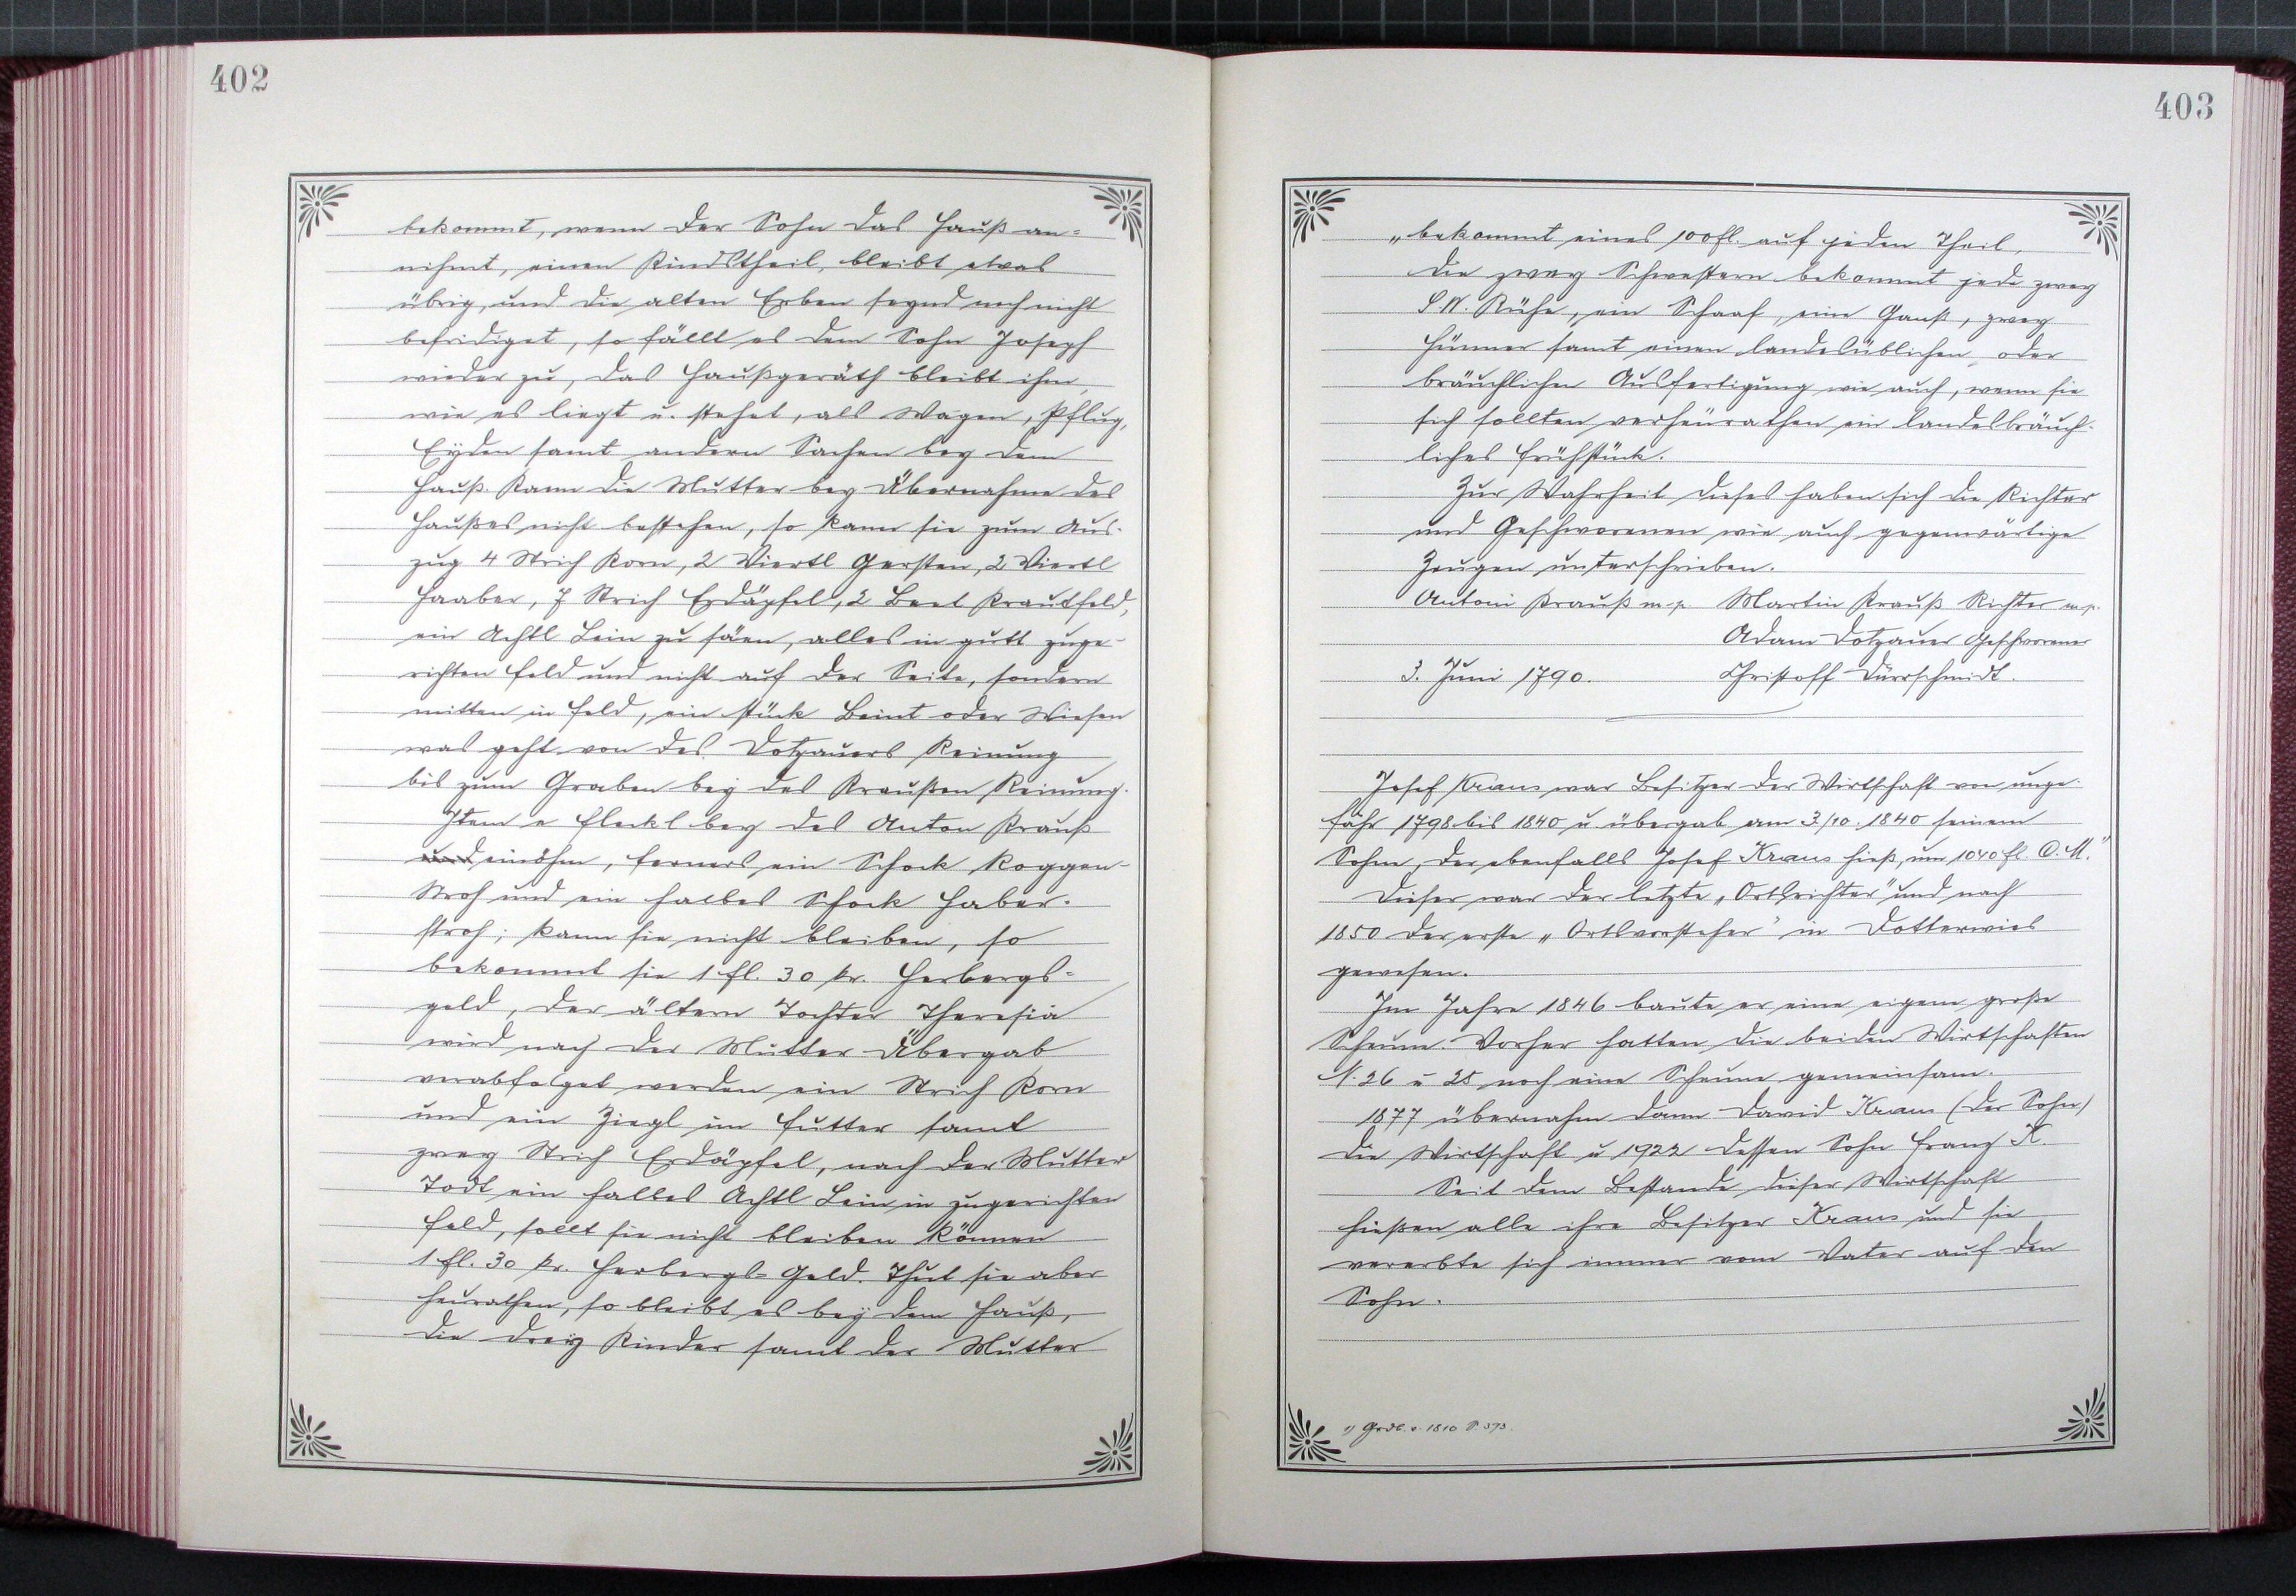 402
bekommt, wenn der Sohn das Hauß an=
nihmt, einen Kindstheil, bleibt etwas
übrig, und die alten Erben seynd noch nicht
befridiget, so fällt es dem Sohn Joseph
wieder zu, das Haußgeräth bleibt ihm,
wie es liegt u. stehet, als Wagen, Pflug,
Eyden samt andern Sachen bey dem
Hauß. Kann die Mutter bey Übernahme des
Haußes nicht bestehen, so kann sie zum Aus-
zug 4 Strich Korn, 2 Viertl Gersten, 2 Viertl
Haaber, 7 Strich Erdäpfel, 2 Beet Krautfeld,
ein Achtl Lein zu säen, alles in gutt zuge-
richten Feld und nicht auf der Seite, sondern
mitten in Feld, ein stück Beint oder Wiesen
was geht von des Dotzauers Reinung
bis zum Graben bey des Kraußen Reinung.
Item a Fleckl bey des Anton Krauß
und einöhm, ferners ein Schock Roggen-
Stroh und ein halbes Schock Haber-
stroh; kann sie nicht bleiben, so
bekommt sie 1 fl. 30 kr. Herbergs=
geld, der ältern Tochter Theresia
wird nach der Mutter Übergab
verabfolget werden ein Strich Korn
und ein Ziegl im Futter samt
zwey Strich Erdäpfel, nach der Mutter
Todt ein halbes Achtl Lein in zugerichten
Feld, sollt sie nicht bleiben können
1 fl. 30 kr. Herbergs=Geld. Thut sie aber
heurathen, so bleibt es bey dem Hauß,
die drey Kinder samt der Mutter
403
„bekommt eines 100 fl. auf jeden Theil,
die zwey Schwestern bekommt jede zwey
S.V. Kühe, ein Schaaf, eine Ganß, zwey
Hünner samt einen landesüblichen oder
bräuchlichen Ausfertigung wie auch, wenn sie
sich sollten verheürathen ein landesbräuch-
liches Frühstück.
Zur Wahrheit dieses haben sich die Richter
und Geschworenen wie auch gegenwärtige
Zeugen unterschrieben.
Antoni Krauß m.p. Martin Krauß Richter m.p.
Adam Dotzauer Geschworener
3. Juni 1790. Christoff Dürrschmidt.
Josef Kraus war Besitzer der Wirtschaft von unge-
fähr 1798 bis 1840 u übergab am 3./10. 1840 seinem
Sohne, der ebenfalls Josef Kraus hieß, um 1040 fl. C.M.
Dieser war der letzte „Ortsrichter" und nach
1850 der erste „Ortsvorsteher" in Dotterwies
gewesen.
Im Jahre 1846 baute er eine eigene große
Scheune. Vorher hatten die beiden Wirtschaften
N. 26 u 25 noch eine Scheune gemeinsam.
1877 übernahm dann David Kraus (der Sohn)
die Wirtschaft u 1922 dessen Sohn Franz K.
Seit dem Bestande dieser Wirtschaft
hießen alle ihre Besitzer Kraus und sie
vererbte sich immer vom Vater auf den
Sohn.
1) Grdb. v. 1810 S. 393.